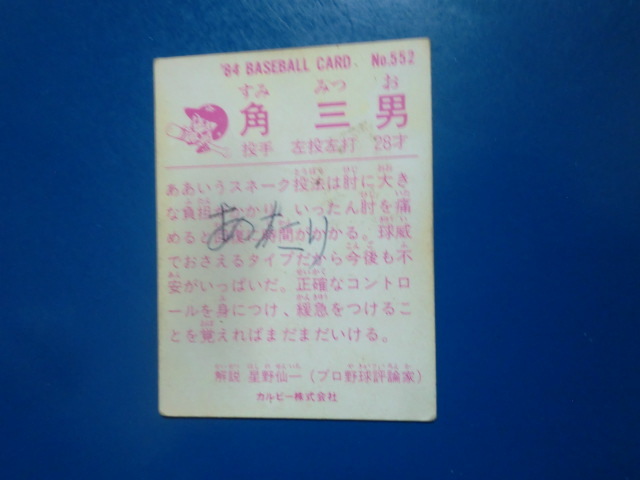 '84 BASEBALL CARD. No.552
すみ みつ お
角 三 男
投手 左投左打 28才
ああいうスネーク投法は肘に大き
な負担がかかり、いったん肘を痛
めると回復に時間がかかる。球威
でおさえるタイプだから今後も不
安がいっぱいだ。正確なコントロ
ールを身につけ、緩急をつけるこ
とを覚えればまだまだいける。
あたり
解説 星野仙一(プロ野球評論家)
カルビー株式会社